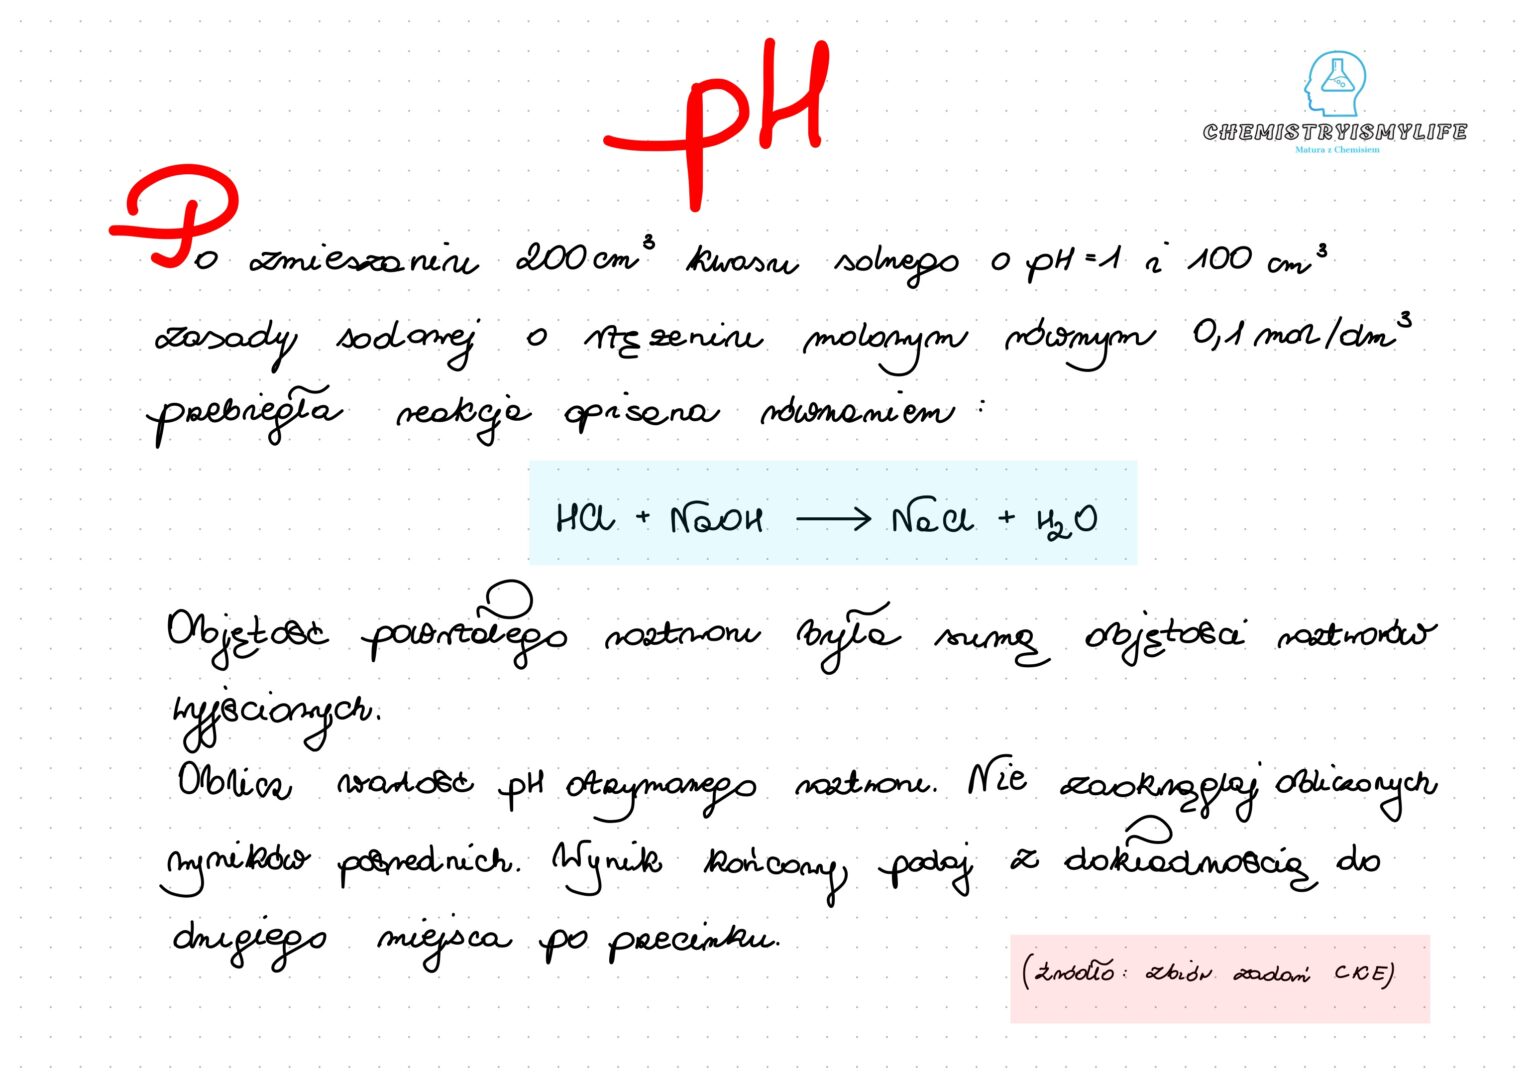 pH
CHEMISTRYISMYLIFE
Matura z Chemisiem
Po zmieszaniu 200 cm³ kwasu solnego o pH = 1 i 100 cm³
zasady sodowej o stężeniu molowym równym 0,1 mol/dm³
przebiegła reakcja opisana równaniem :
HCl + NaOH → NaCl + H₂O
Objętość powstałego roztworu była sumą objętości roztworów
wyjściowych.
Oblicz wartość pH otrzymanego roztworu. Nie zaokrąglaj obliczonych
wyników pośrednich. Wynik końcowy podaj z dokładnością do
drugiego miejsca po przecinku.
(źródło: zbiór zadań CKE)